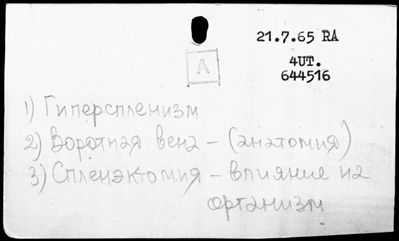 21.7.65 RA
4UT.
644516
A
1) Гиперспленизм
2) Воротная вена - (анатомия)
3) Спленэктомия - влияние на
организм